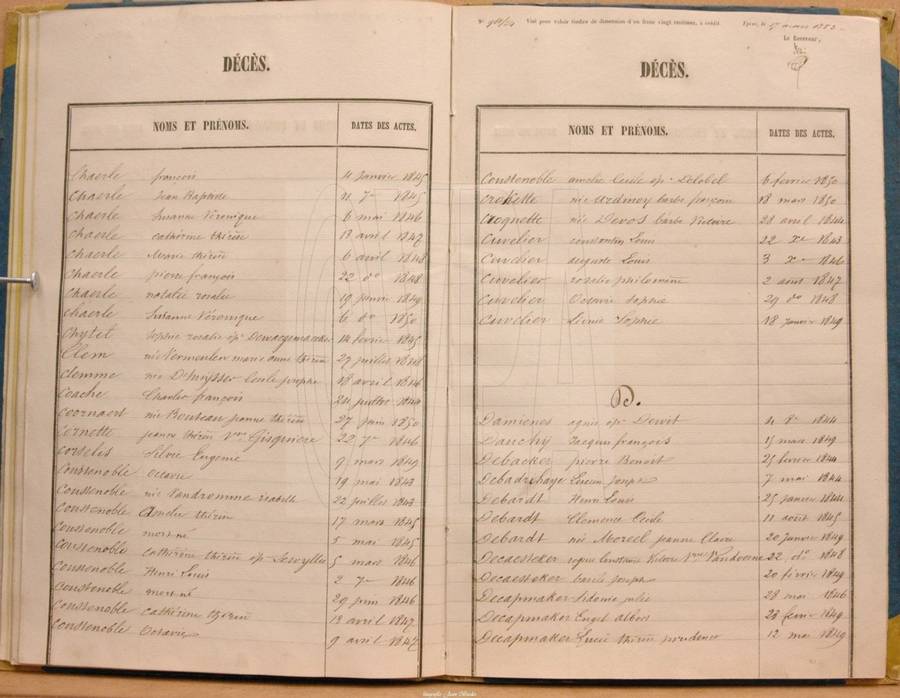 DÉCÈS.
NOMS ET PRÉNOMS. DATES DES ACTES.
Chaerle françois 4 janvier 1845
Chaerle Jean Baptiste 11 7re 1845
Chaerle Susanne Véronique 6 mai 1846
Chaerle cathérine thérèse 13 avril 1847
Chaerle Marie thérèse 6 avril 1848
Chaerle pierre françois 22 do 1848
Chaerle natalie rosalie 19 janvier 1849
Chaerle Susanne Véronique 6 do 1850
Chytet Sophie rosalie ep. 14 février 1845
Clem née Vermeulen marie anne thérèse 29 juillet 1848
Clemme née 18 avril 1846
Coache Charles françois 24 juillet 1844
Coornaert née Bouteau jeanne thérèse 27 juin 1850
Cornette jeanne thérèse Vve 22 7re 1846
Corselis Silvie Eugenie 9 mars 1849
Coustenoble Octavie 19 mai 1843
Coustenoble née Vandromme isabelle 22 juillet 1843
Coustenoble Amelie thérèse 17 mars 1845
Coustenoble mort né 5 mai 1845
Coustenoble cathérine thérèse ep. 5 mars 1846
Coustenoble Henri Louis 2 7re 1846
Coustenoble mort né 29 juin 1846
Coustenoble cathérine thérèse 13 avril 1847
Coustenoble Octavie 9 avril 1847
Visé pour valoir timbre de dimension d'un franc vingt centimes, à crédit. Ypres, le mars 1883
Le Receveur,
DÉCÈS.
NOMS ET PRÉNOMS. DATES DES ACTES.
Coustenoble amelie Cecile ep. Delobel 6 fevrier 1850
Crokette née barbe françoise 18 mars 1850
Croquette née Devos barbe Victoire 28 avril 1844
Cuvelier constantin Louis 22 Xe 1843
Cuvelier auguste Louis 3 Xe 1846
Cuvelier rosalie philomène 2 aout 1847
Cuvelier Octavie Sophie 29 do 1848
Cuvelier Sophie 18 janvier 1849
D.
Damienes agnes ep. Dewit 4 8e 1844
Dauchy Jacques françois 15 mars 1849
Debacker pierre Benoit 25 fevrier 1844
Debadrihaye Lucien joseph 7 mai 1844
Debardt Henri Louis 25 janvier 1844
Debardt Clemence Cecile 11 août 1845
Debardt née Morcel jeanne Claire 20 janvier 1849
Decaesteker regine Constance Victoire Vve Vandoorne 22 do 1848
Decaesteker basile joseph 20 février 1849
Decapmaker sidonie julie 28 mai 1846
Decapmaker Engel albert 23 fevrier 1849
Decapmaker Lucie thérèse prudence 12 mai 1849